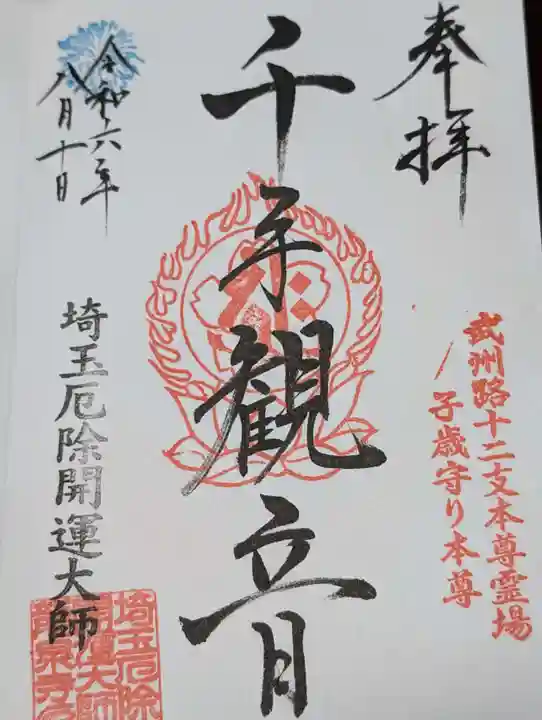 奉拝
武州路十二支本尊霊場
子歳守り本尊
千手観音
令和六年
八月十日
埼玉厄除開運大師
埼玉厄除
開運大師
龍泉寺